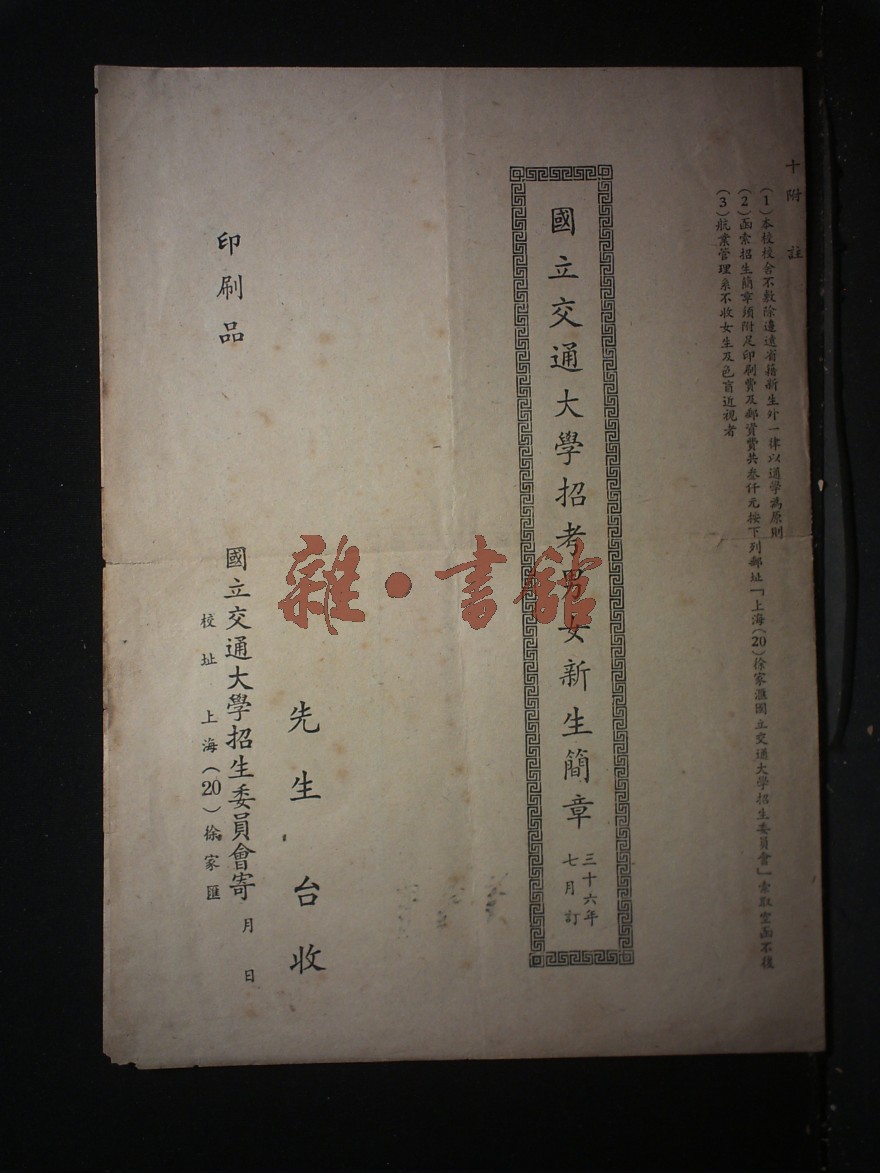 十附註
(1)本校校舍不敷除邊遠省籍新生外一律以通學為原則
(2)函索招生簡章須附足印刷費及郵資費共叁仟元按下列郵址「上海(20)徐家滙國立交通大學招生委員會」索取空函不復
(3)航業管理系不收女生及色盲近視者
國立交通大學招考男女新生簡章
三十六年
七月訂
先生台收
國立交通大學招生委員會寄
月日
校址上海(20)徐家匯
印刷品
雜·書館